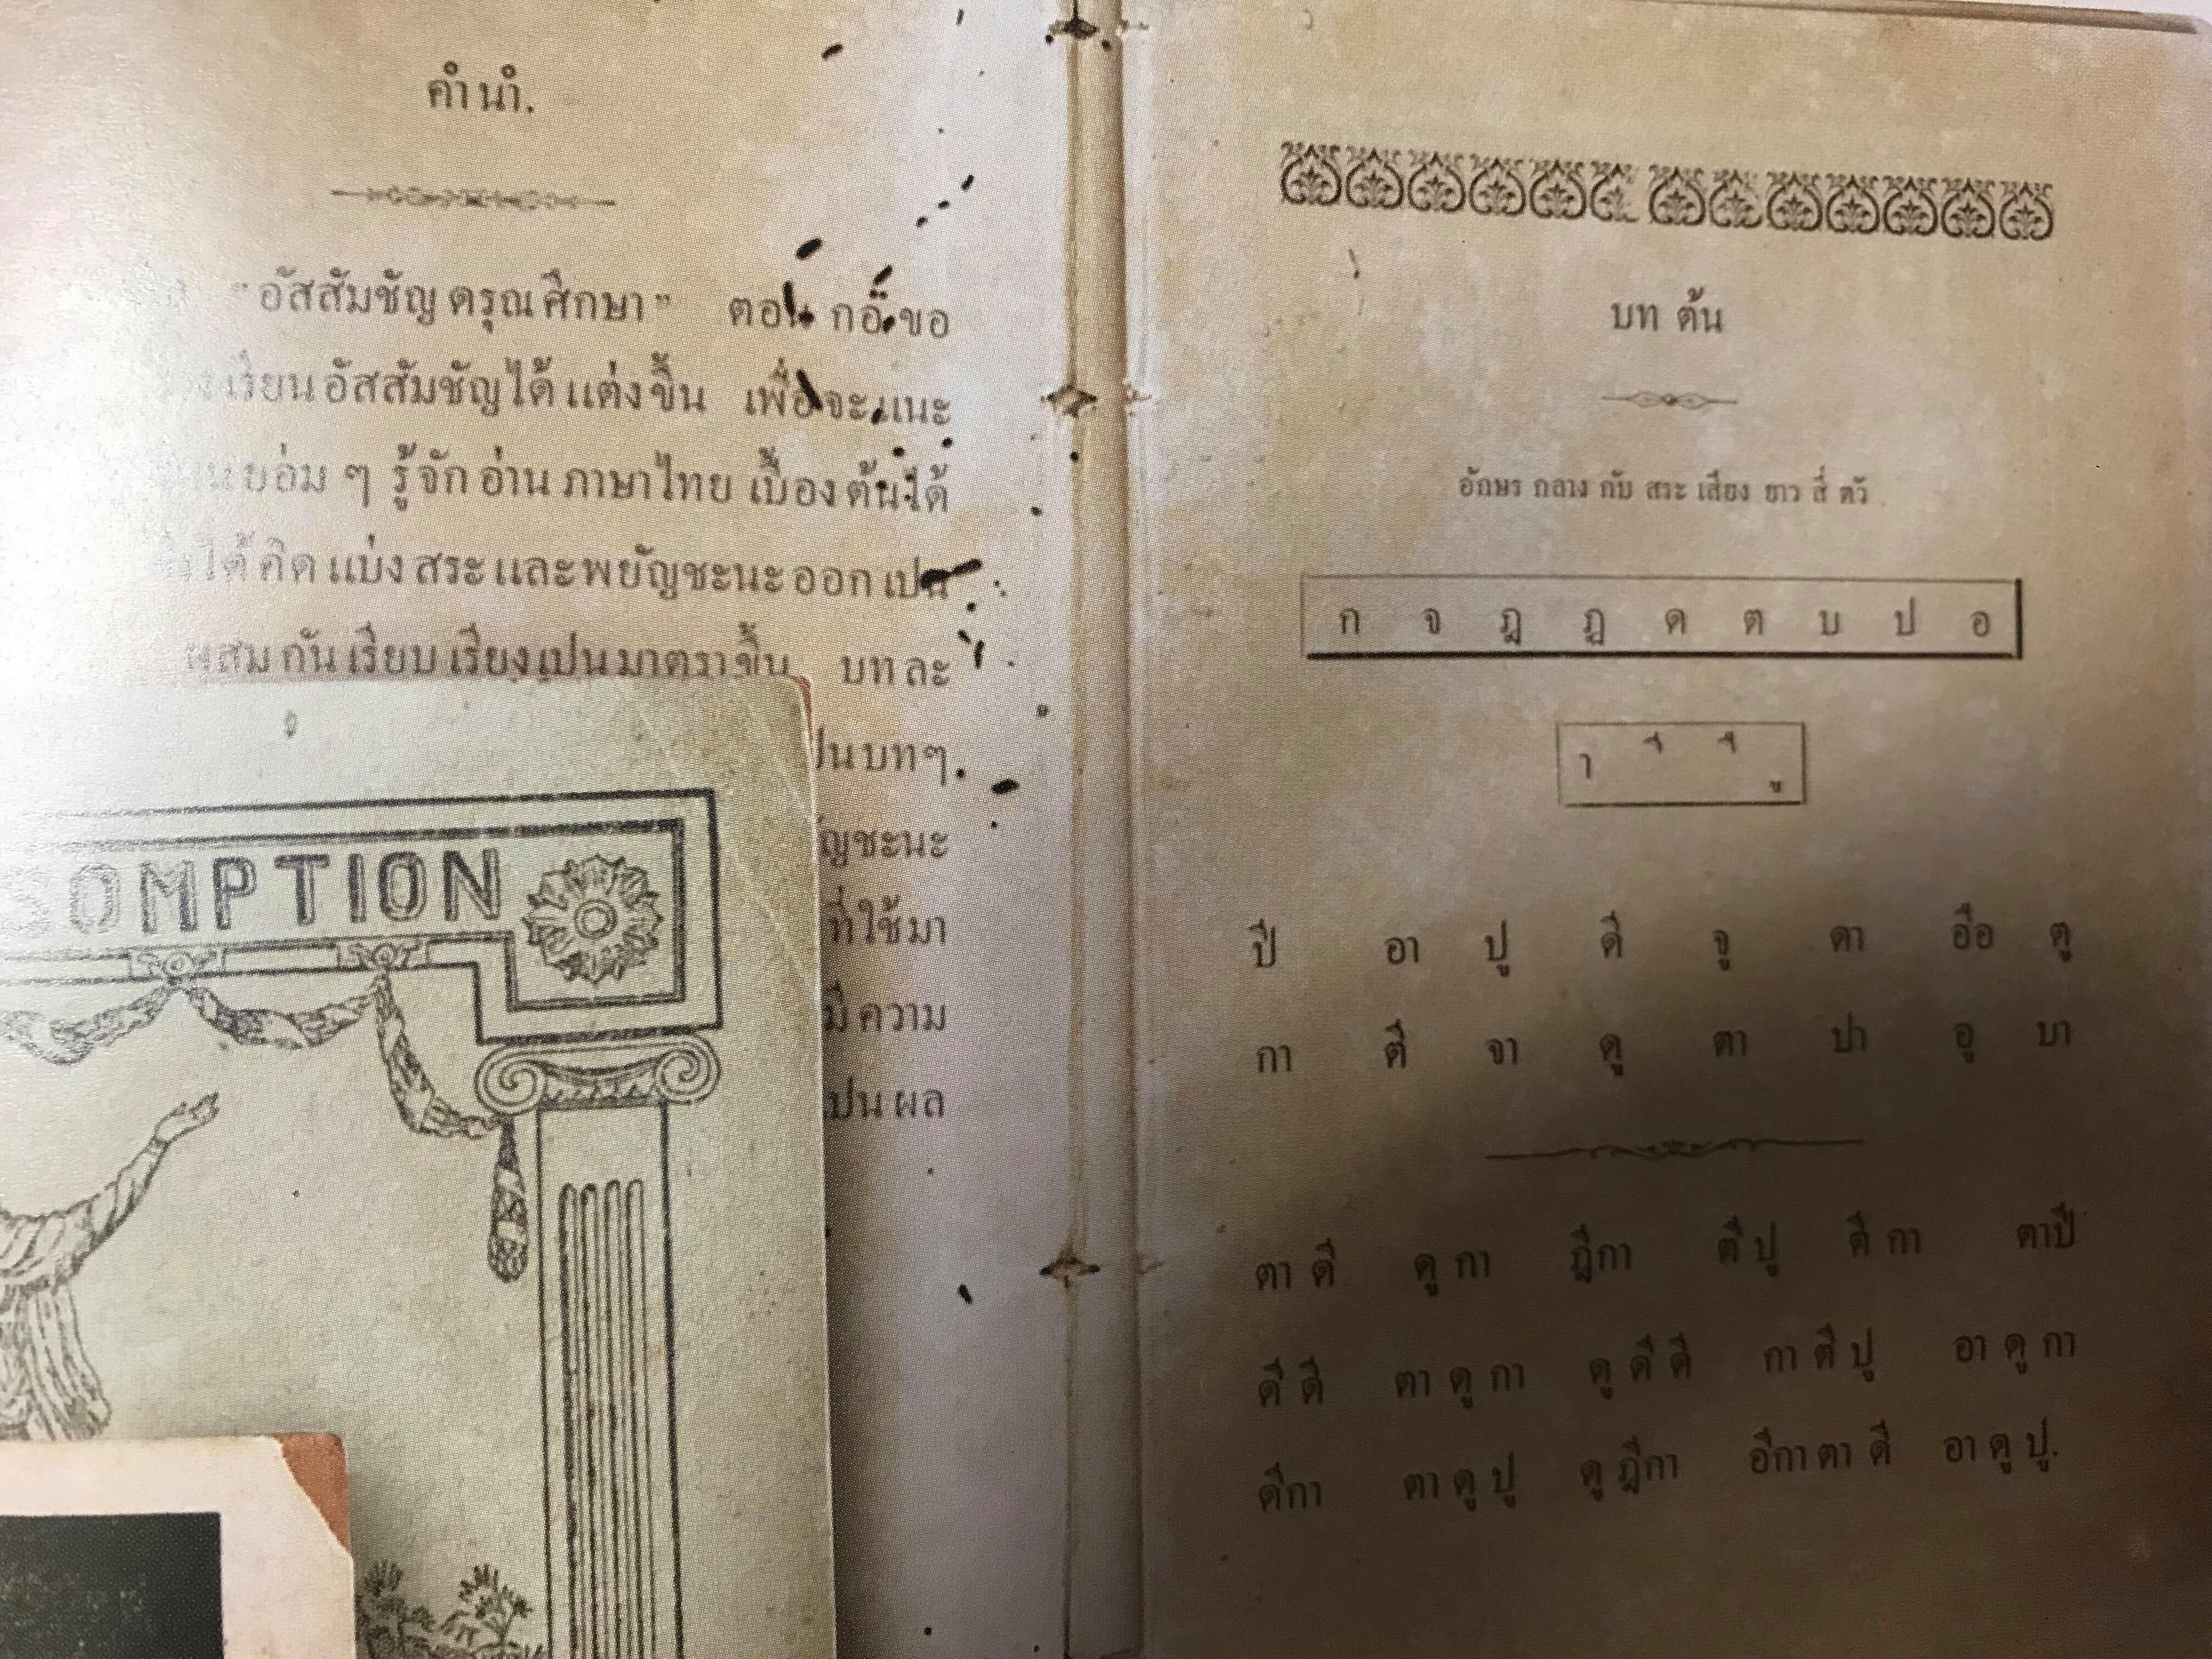 คำนำ.
"อัสสัมชัญ ดรุณศึกษา" ตอน กอ ขอ
เรียนอัสสัมชัญได้แต่งขึ้น เพื่อจะแนะ
ย่อม ๆ รู้จักอ่านภาษาไทย เบื้องต้นได้
ได้คิดแบ่งสระและพยัญชะนะออกเปน
ผสมกันเรียบเรียงเปนมาตราขึ้น บทละ
บทๆ.
ที่ใช้มา
มีความ
เปนผล
SOMPTION
บท ต้น
อักษร กลาง กับ สระ เสียง ยาว สี่ ตัว
ก จ ฎ ฏ ด ต บ ป อ
า ี ื ู
ปี อา ปู ดี จู ดา อือ ตู
กา ตี จา ดู ตา ปา อู บา
ตา ดี ดู กา ฎีกา ตี ปู ตี กา ตาปี
ดี ดี ตา ดู กา ดู ดี ดี กา ตี ปู อา ดู กา
ดีกา ตา ดู ปู ดู ฎีกา อีกา ตา ดี อา ดู ปู.